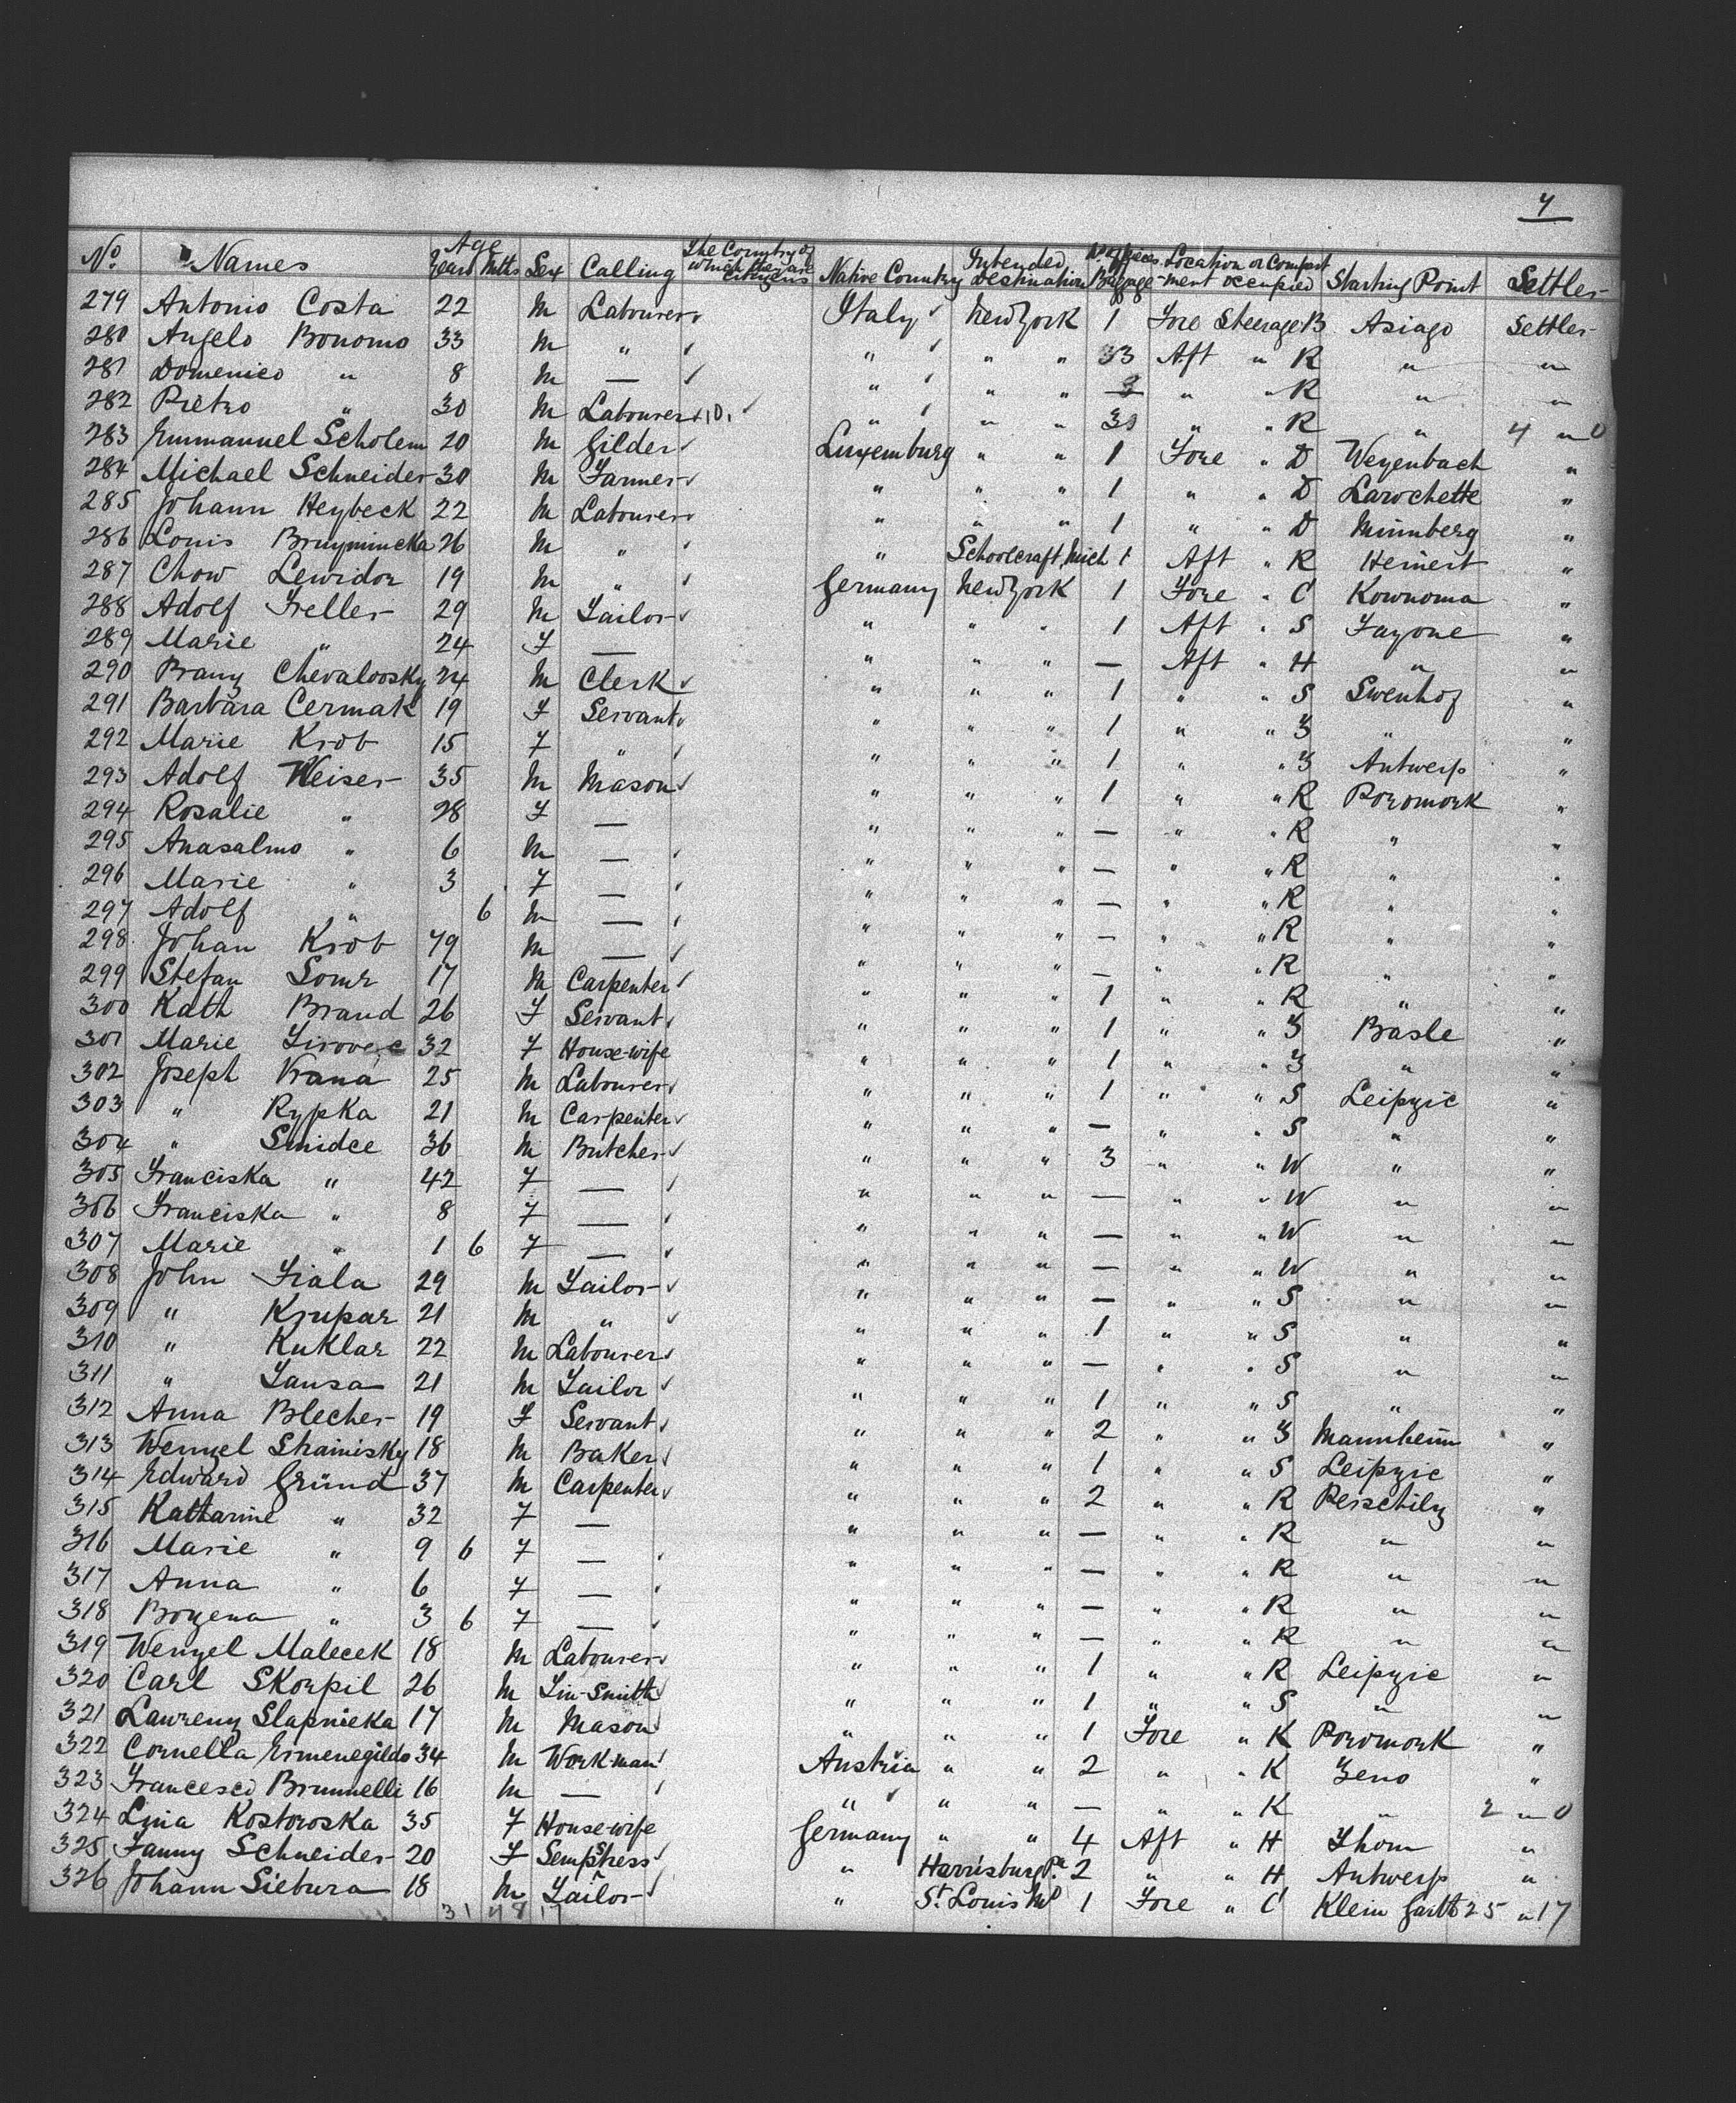 7
No. Names Age Years Mths Sex Calling The Country of which they are citizens Native Country Intended Destination No. of Pieces Baggage Location or Compartment occupied Starting Point Settler
279 Antonio Costa 22 M Labourer Italy New York 1 Fore Steerage B Asiago Settler
280 Angelo Bonomo 33 M " " " " 33 Aft " R " "
281 Domenico " 8 M — " " " 3 " " R " "
282 Pietro " 30 M Labourer " " " " " R " 4 " 0
283 Emmanuel Scholem 20 M Gilder Luxemburg " " 1 Fore " D Weyenbach "
284 Michael Schneider 30 M Farmer " " " 1 " " D Larochette "
285 Johann Heybeck 22 M Labourer " " " 1 " " D Münnberg "
286 Louis Bruynincka 26 M " " Schoolcraft, Mich 1 Aft " R Heinert "
287 Chow Lewidor 19 M " Germany New York 1 Fore " C Kownoma "
288 Adolf Freller 29 M Tailor " " " 1 Aft " S Fayone "
289 Marie " 24 F — " " " — Aft " H " "
290 Brany Chevaloosky 24 M Clerk " " " 1 " " S Swenhof "
291 Barbara Cermak 19 F Servant " " " 1 " " Z " "
292 Marie Krob 15 F " " " " 1 " " Z Antwerp "
293 Adolf Weiser 35 M Mason " " " 1 " " R Poromork "
294 Rosalie " 28 F — " " " — " " R " "
295 Anasalmo " 6 M — " " " — " " R " "
296 Marie " 3 F — " " " — " " R " "
297 Adolf " 6 M — " " " — " " R " "
298 Johan Krob 79 M — " " " — " " R " "
299 Stefan Somr 17 M Carpenter " " " 1 " " R " "
300 Kath Brand 26 F Servant " " " 1 " " Z Basle "
301 Marie 32 F House-wife " " " 1 " " Z " "
302 Joseph Vrana 25 M Labourer " " " 1 " " S Leipzic "
303 " Rypka 21 M Carpenter " " " — " " S " "
304 " Smidce 36 M Butcher " " " 3 " " W " "
305 Franciska " 42 F — " " " — " " W " "
306 Franciska " 8 F — " " " — " " W " "
307 Marie " 1 6 F — " " " — " " W " "
308 John Fiala 29 M Tailor " " " — " " S " "
309 " Krupar 21 M " " " " 1 " " S " "
310 " Kuklar 22 M Labourer " " " — " " S " "
311 " Jansa 21 M Tailor " " " 1 " " S " "
312 Anna Blecher 19 F Servant " " " 2 " " Z Mannheim "
313 Wenzel Strainisky 18 M Baker " " " 1 " " S Leipzic "
314 Edward Gründ 37 M Carpenter " " " 2 " " R Perschily "
315 Katharine " 32 F — " " " — " " R " "
316 Marie " 9 6 F — " " " — " " R " "
317 Anna " 6 F — " " " — " " R " "
318 Bozena " 3 6 F — " " " — " " R " "
319 Wenzel Malecek 18 M Labourer " " " 1 " " R Leipzic "
320 Carl Skorpil 26 M Tin-Smith " " " 1 " " S " "
321 Laurenz Slapnicka 17 M Mason " " " 1 Fore " K Poromork "
322 Cornella Ermenegildo 34 M Workman Austria " " 2 " " K Zeno "
323 Francesco Brunnelli 16 M — " " " — " " K " 2 " 0
324 Lina Kostoroska 35 F House-wife Germany " " 4 Aft " H Thorn "
325 Fanny Schneider 20 F Sempstress " Harrisburg Pa. 2 " " H Antwerp "
326 Johann Siebura 18 M Tailor " St. Louis Mo 1 Fore " C Klein Garth 25 " 17